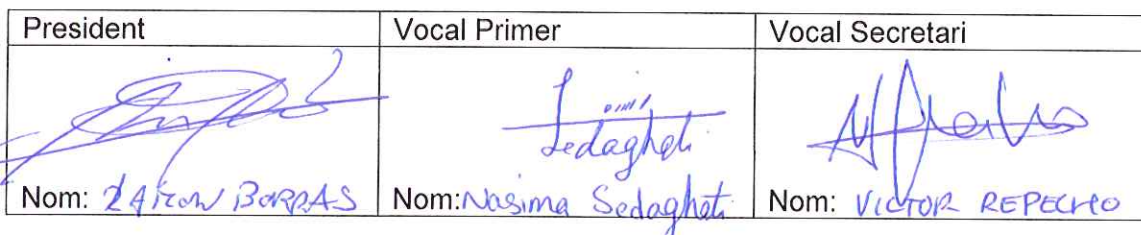 President Vocal Primer Vocal Secretari
Sedagheti
Nom: BORRAS Nom: Nasima Sedagheti Nom: VICTOR REPECHO